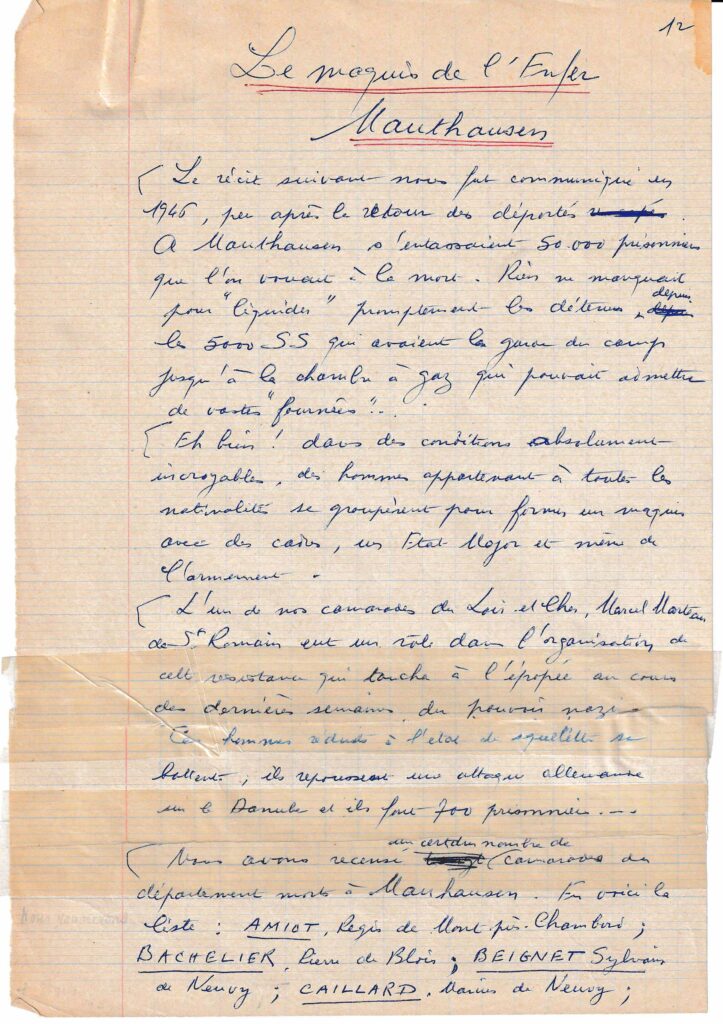 12
Le maquis de l'Enfer
Mauthausen
Le récit suivant nous fut communiqué en
1946, peu après le retour des déportés
A Mauthausen s'entassaient 50.000 prisonniers
que l'on vouait à la mort. Rien ne manquait
pour "liquider" promptement les détenus, depuis
les 5000 SS qui avaient la garde du camp
jusqu'à la chambre à gaz qui pouvait admettre
de vastes "fournées"...
Eh bien! dans des conditions absolument
incroyables, des hommes appartenant à toutes les
nationalités se groupèrent pour former un maquis
avec des cadres, un Etat Major et même de
l'armement.
L'un de nos camarades du Loir-et-Cher, Marcel Marteau
de St Romain eut un rôle dans l'organisation de
cette résistance qui toucha à l'épopée au cours
des dernières semaines du pouvoir nazi
Ces hommes réduits à l'état de squelette se
battent; ils repoussent une attaque allemande
sur le Danube et ils font 700 prisonniers....
Nous avons recensé un certain nombre de camarades du
département morts à Mauthausen. En voici la
liste: AMIOT, Régis de Mont-près-Chambord;
BACHELIER, Pierre de Blois; BEIGNET Sylvain
de Neuvy; CAILLARD, de Neuvy;